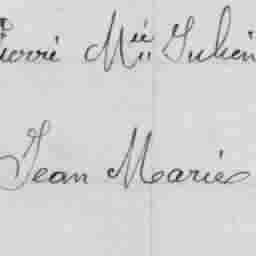 Pierre Mie Julien
Jean Marie